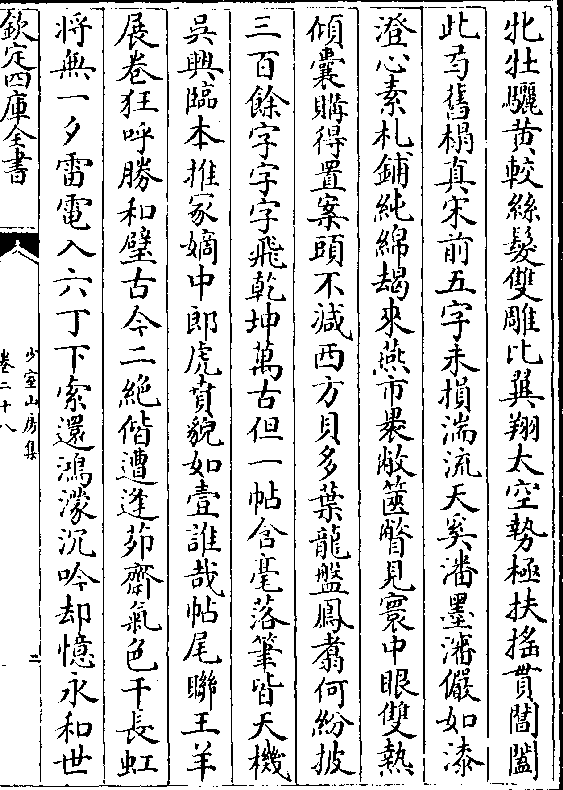 牝牡驪黄較絲髮雙雕比翼翔太空勢極扶揺貫閶闔
此刻舊榻真宋前五字未損湍流天奚潘墨瀋儼如漆
澄心素札鋪純綿朅來燕市褁敝篋瞥見寰中眼雙熱
傾囊購得置案頭不減西方貝多葉龍盤鳳翥何紛披
三百餘字字字飛乾坤萬古但一帖含毫落筆皆天機
吳興臨本推冢嫡中郎虎賁貌如壹誰哉帖尾聯王羊
展卷狂呼勝和璧古今二絶偕遭逢茆齋氣色干長虹
将無一夕雷電入六丁下索還鴻濛沉吟却憶永和世
欽定四庫全書
少室山房集
卷二十八
二